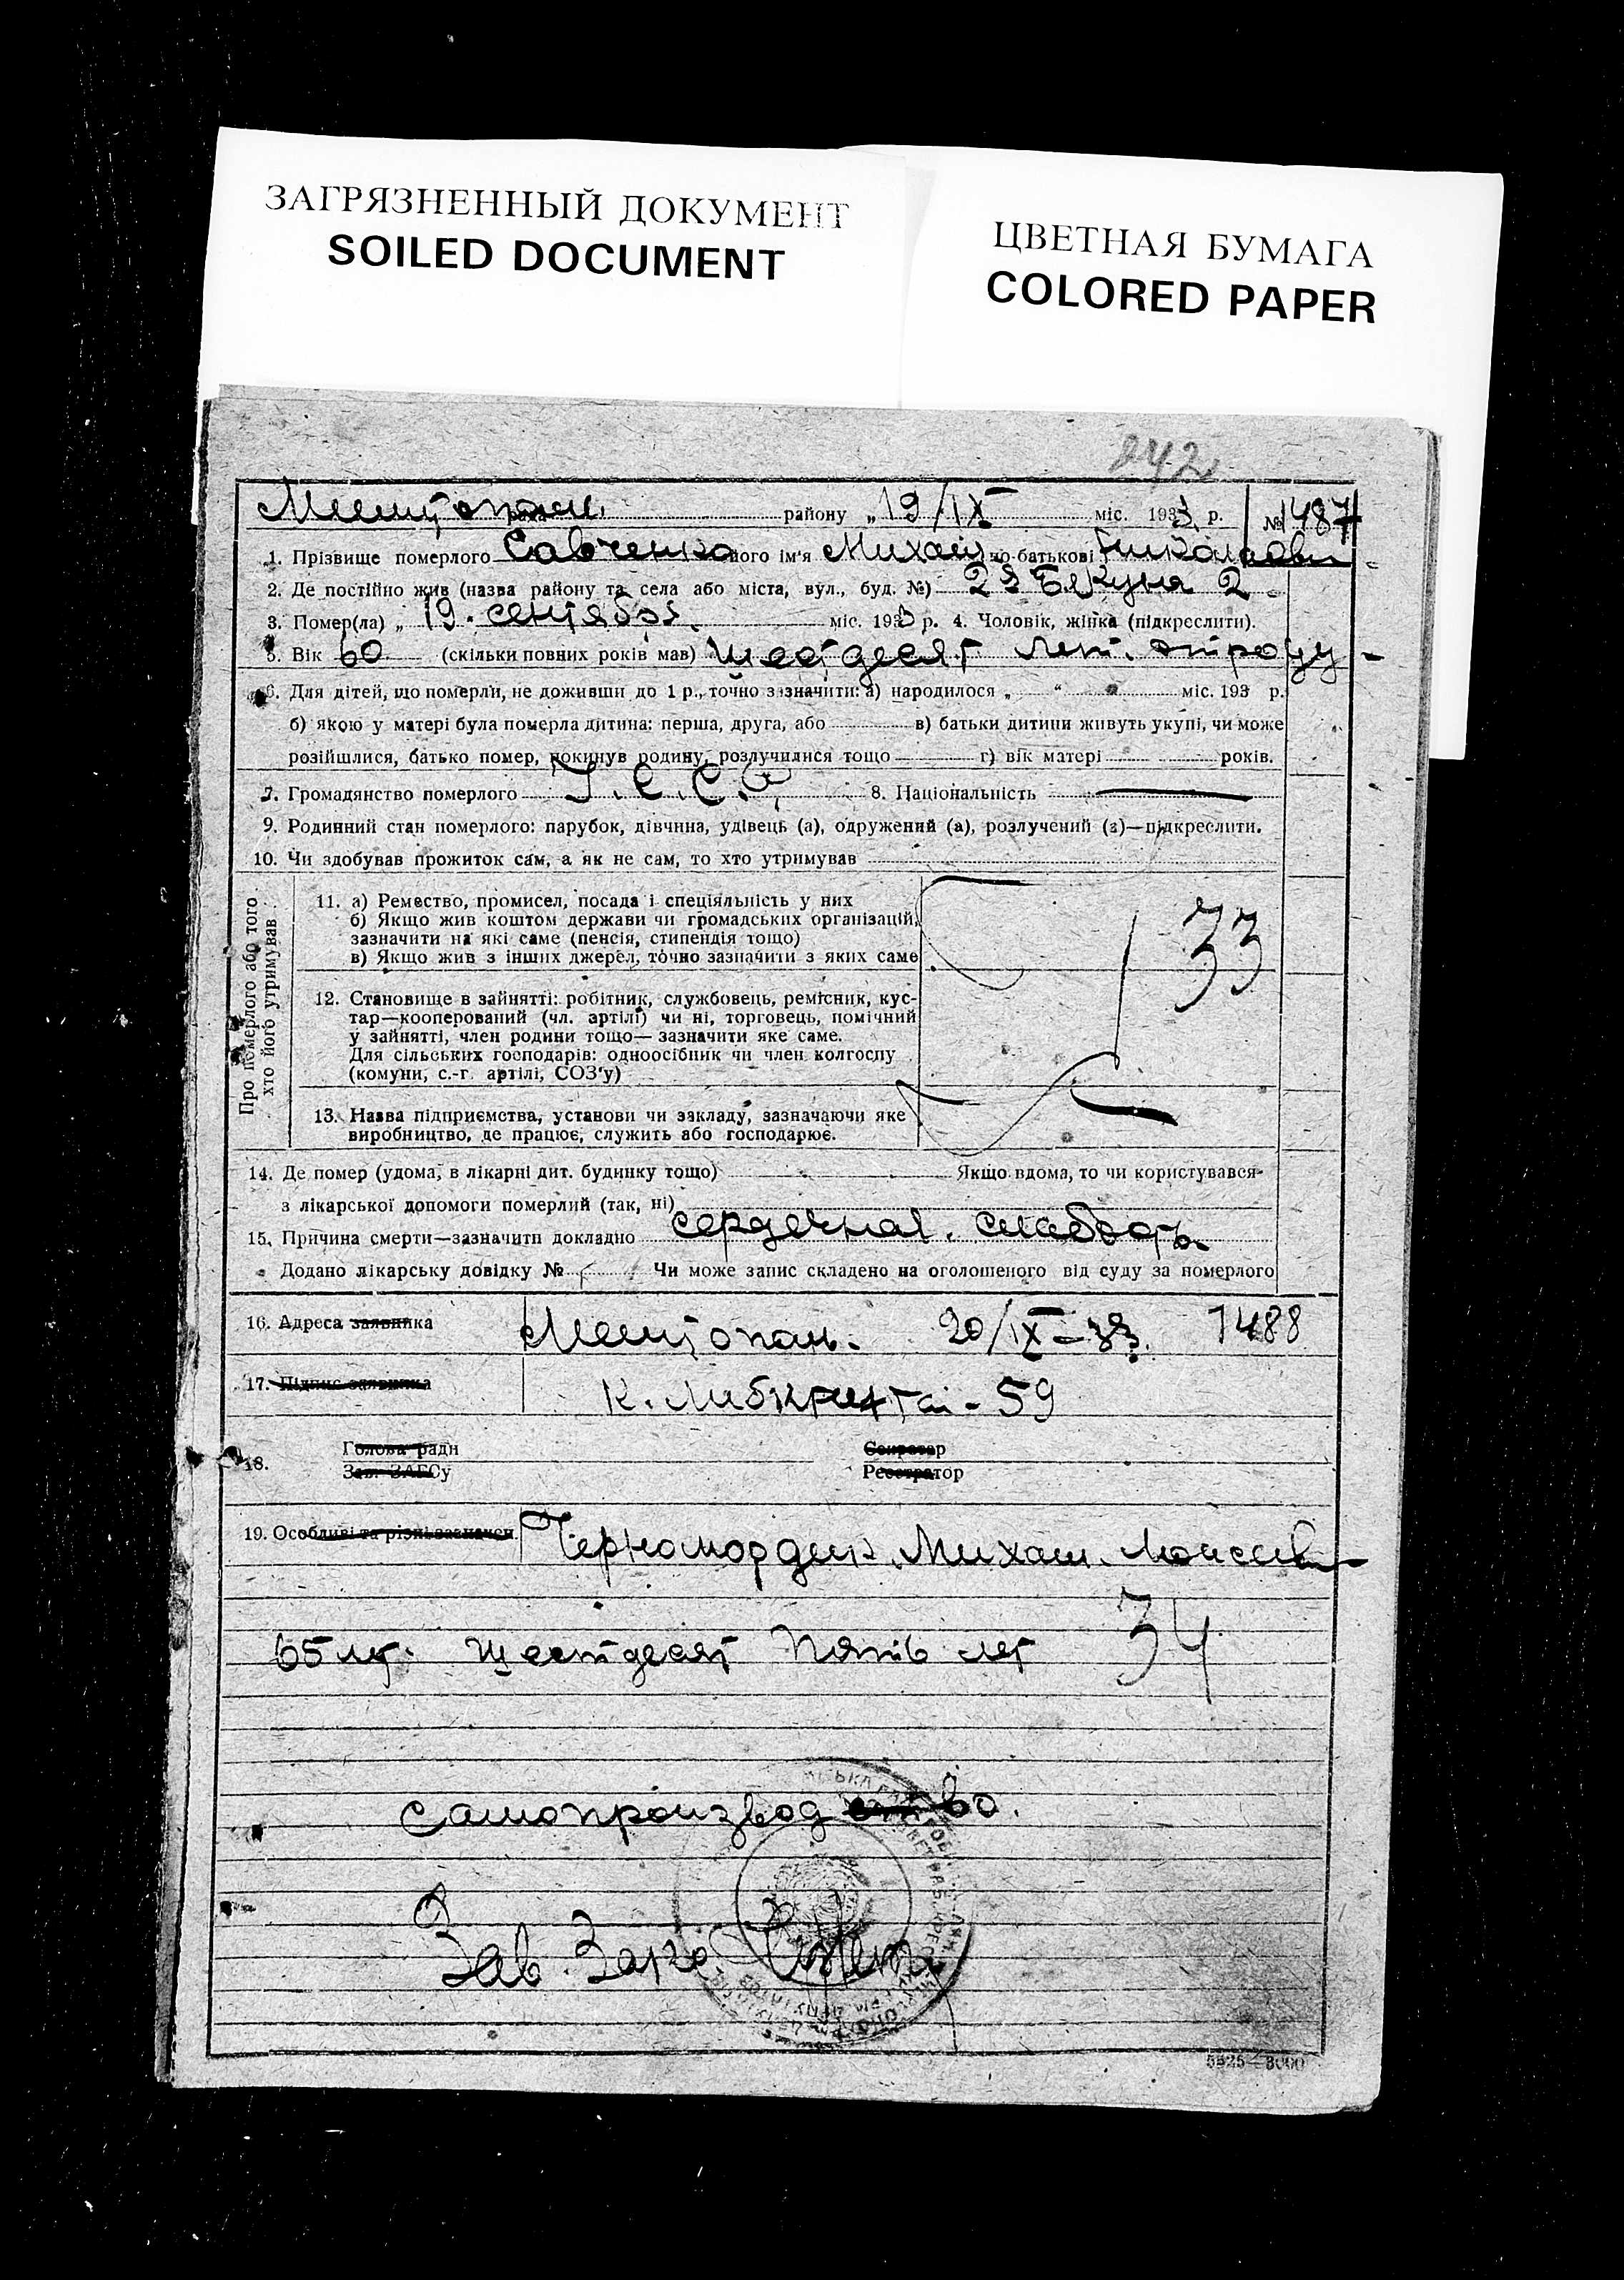 ЗАГРЯЗНЕННЫЙ ДОКУМЕНТ
SOILED DOCUMENT
ЦВЕТНАЯ БУМАГА
COLORED PAPER
242
району „19/IX міс. 1933 р. № 1487
1. Прізвище померлого Савченко його ім'я Михаил по-батькові
2. Де постійно жив (назва району та села або міста, вул., буд. №) 2
3. Помер(ла) „ 19. сентября міс. 1933 р. 4. Чоловік, жінка (підкреслити).
5. Вік 60 (скільки повних років мав) шестдесят лет.
6. Для дітей, що померли, не доживши до 1 р., точно зазначити: а) народилося „ “ міс. 193 р.
б) якою у матері була померла дитина: перша, друга, або в) батьки дитини живуть укупі, чи може
розійшлися, батько помер, покинув родину, розлучилися тощо г) вік матері років.
7. Громадянство померлого 8. Національність —
9. Родинний стан померлого: парубок, дівчина, удівець (а), одружений (а), розлучений (а)—підкреслити.
10. Чи здобував прожиток сам, а як не сам, то хто утримував
Про померлого або того хто його утримував
11. а) Ремество, промисел, посада і спеціяльність у них
б) Якщо жив коштом держави чи громадських організацій,
зазначити на які саме (пенсія, стипендія тощо)
в) Якщо жив з інших джерел, точно зазначити з яких саме
33
12. Становище в зайнятті: робітник, службовець, ремісник, кус-
тар—кооперований (чл. артілі) чи ні, торговець, помічний
у зайнятті, член родини тощо— зазначити яке саме.
Для сільських господарів: одноосібник чи член колгоспу
(комуни, с.-г. артілі, СОЗ'у)
13. Назва підприємства, установи чи закладу, зазначаючи яке
виробництво, де працює, служить або господарює.
14. Де помер (удома, в лікарні дит. будинку тощо) Якщо вдома, то чи користувався
з лікарської допомоги померлий (так, ні)
15. Причина смерти—зазначити докладно сердечная. слабость
Додано лікарську довідку № Чи може запис складено на оголошеного від суду за померлого
16. Адреса заявника 20/IX-33. 1488
17. Підпис заявника К. Либкнехта - 59
18. Голова ради Секретар
Зав. ЗАГСу Реєстратор
19. Особливі та різні зазначен. Чернमордик Михаил
34
65 шестдесят пять лет
самопроизвод
Зав.
5525—3000